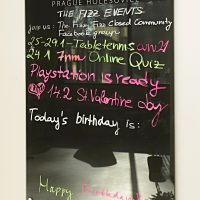 PRAGUE HOLEŠOVICE
THE FIZZ EVENTS
join us: The Fizz Fizz Closed Community
Facebook group
25-29.1 - Table tennis
27.1 7pm Online Quiz
Playstation is ready
14.2 St. Valentine day
Today's birthday is:
Happy Birthday